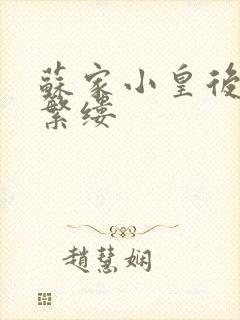 蘇家小皇後
繁缕
趙慧娴